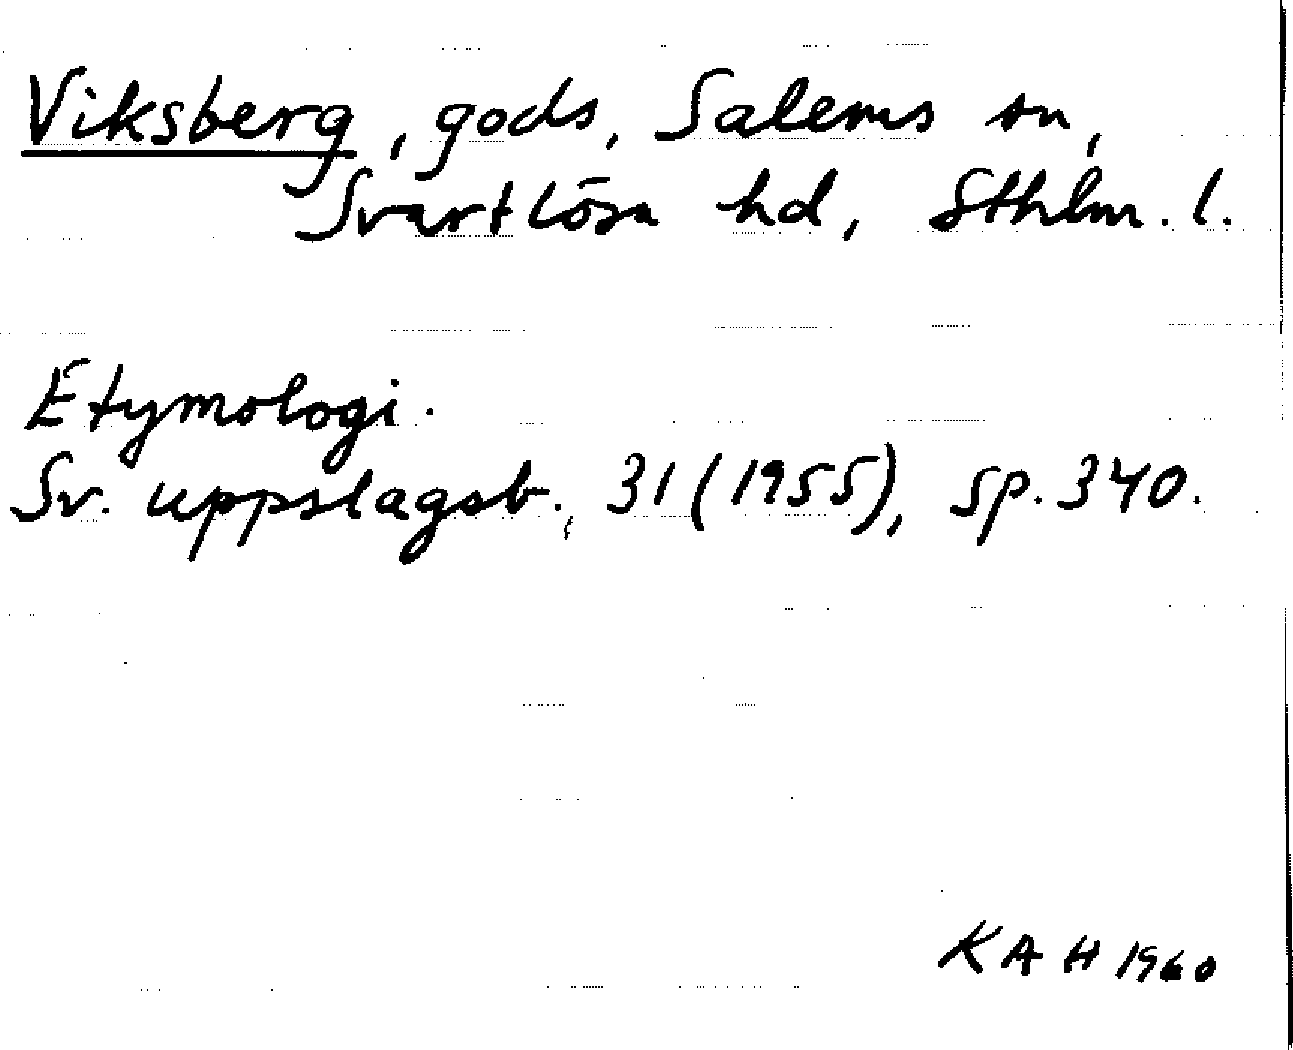 Viksberg, gods, Salems sn,
Svartlösa hd, Sthlm. l.
Etymologi.
Sv. uppslagsb., 31 (1955), sp. 340.
KAH 1960